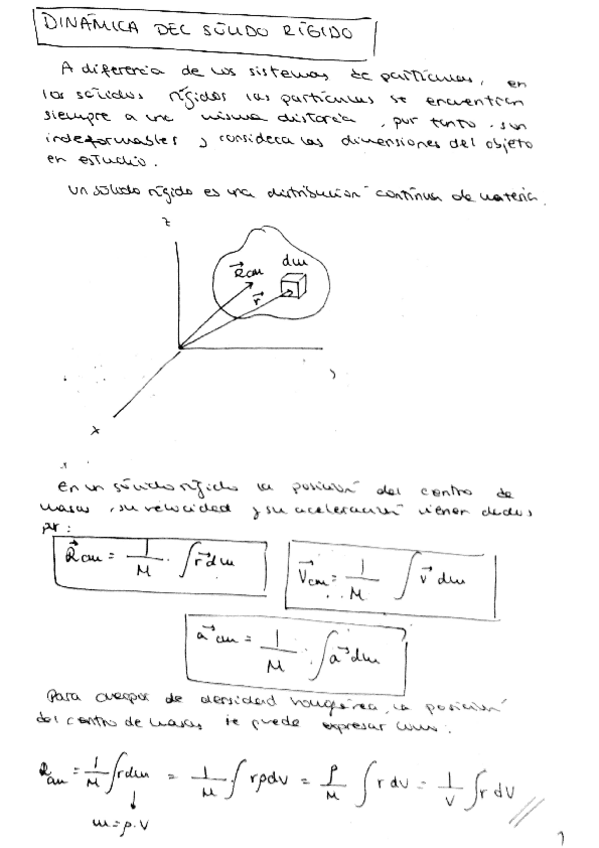 DINÁMICA DEL SÓLIDO RÍGIDO
A diferencia de los sistemas de partículas, en
los sólidos rígidos las partículas se encuentran
siempre a una misma distancia, por tanto son
indeformables y considera las dimensiones del objeto
en estudio.
Un sólido rígido es una distribución continua de materia.
z
R⃗cm dm
r⃗
y
x
En un sólido rígido la posición del centro de
masas, su velocidad y su aceleración vienen dados
por:
R⃗cm = 1/M · ∫ r⃗ dm
V⃗cm = 1/M ∫ v⃗ dm
a⃗cm = 1/M · ∫ a⃗ dm
Para cuerpos de densidad homogénea, la posición
del centro de masas se puede expresar como:
Rcm = 1/M ∫ r dm = 1/M ∫ r ρ dV = ρ/M ∫ r dV = 1/V ∫ r dV //
↓
m = ρ · V
1